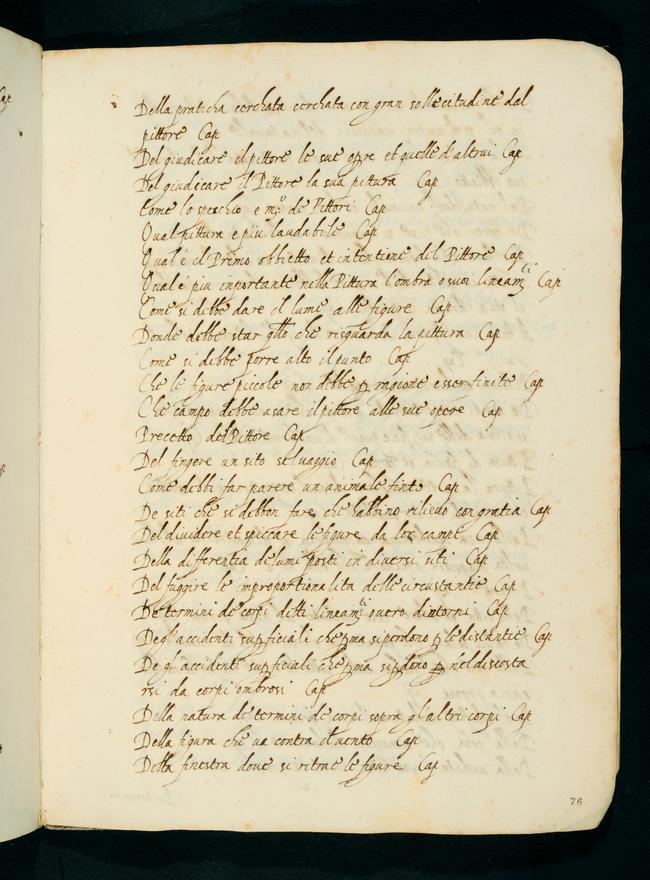 Della praticha cerchata cerchata con gran sollecitudine dal
pittore Cap
Del giudicare il pittore le sue opre et quelle d'altrui Cap
Del giudicare il Pittore la sua pittura Cap
Come lo spechio e m.º de Pittori Cap
Qual pittura e piu laudabile Cap
Qual è il Primo obbietto et intentione del Pittore Cap
Qual é piu inportante nella Pittura l'ombra o suoi lineam.ti Cap
Come si debbe dare il lume alle figure Cap
Donde debbe star q̃llo che risguarda la pittura Cap
Come si debbe porre alto il punto Cap
Che le figure piccole non debbe ꝑ ragione esser finite Cap
Che campo debbe usare il pittore alle sue opere Cap
Precetto del Pittore Cap
Del fingere un sito seluaggio Cap
Come debbi far parere un animale finto Cap
De siti che si debbon fare che habbino rilieuo con gratia Cap
Del diuidere et spiccare le figure da loc campi Cap
Della differentia de lumi posti in diuersi siti Cap
Del fuggire le improportionalita delle circustantie Cap
De termini de corpi detti lineam.ti ouero dintorni Cap
De gl'accidenti suꝑficiali che pͫa si perdono ꝑ le distantie Cap
De gl'accidenti suꝑficiali che pͫa si ꝑdono ꝑ nel discosta
rsi da corpi ombrosi Cap
Della natura de termini de corpi sopra gl'altri corpi Cap
Della figura che ua contra il uento Cap
Della finestra doue si ritrae le figure Cap
76